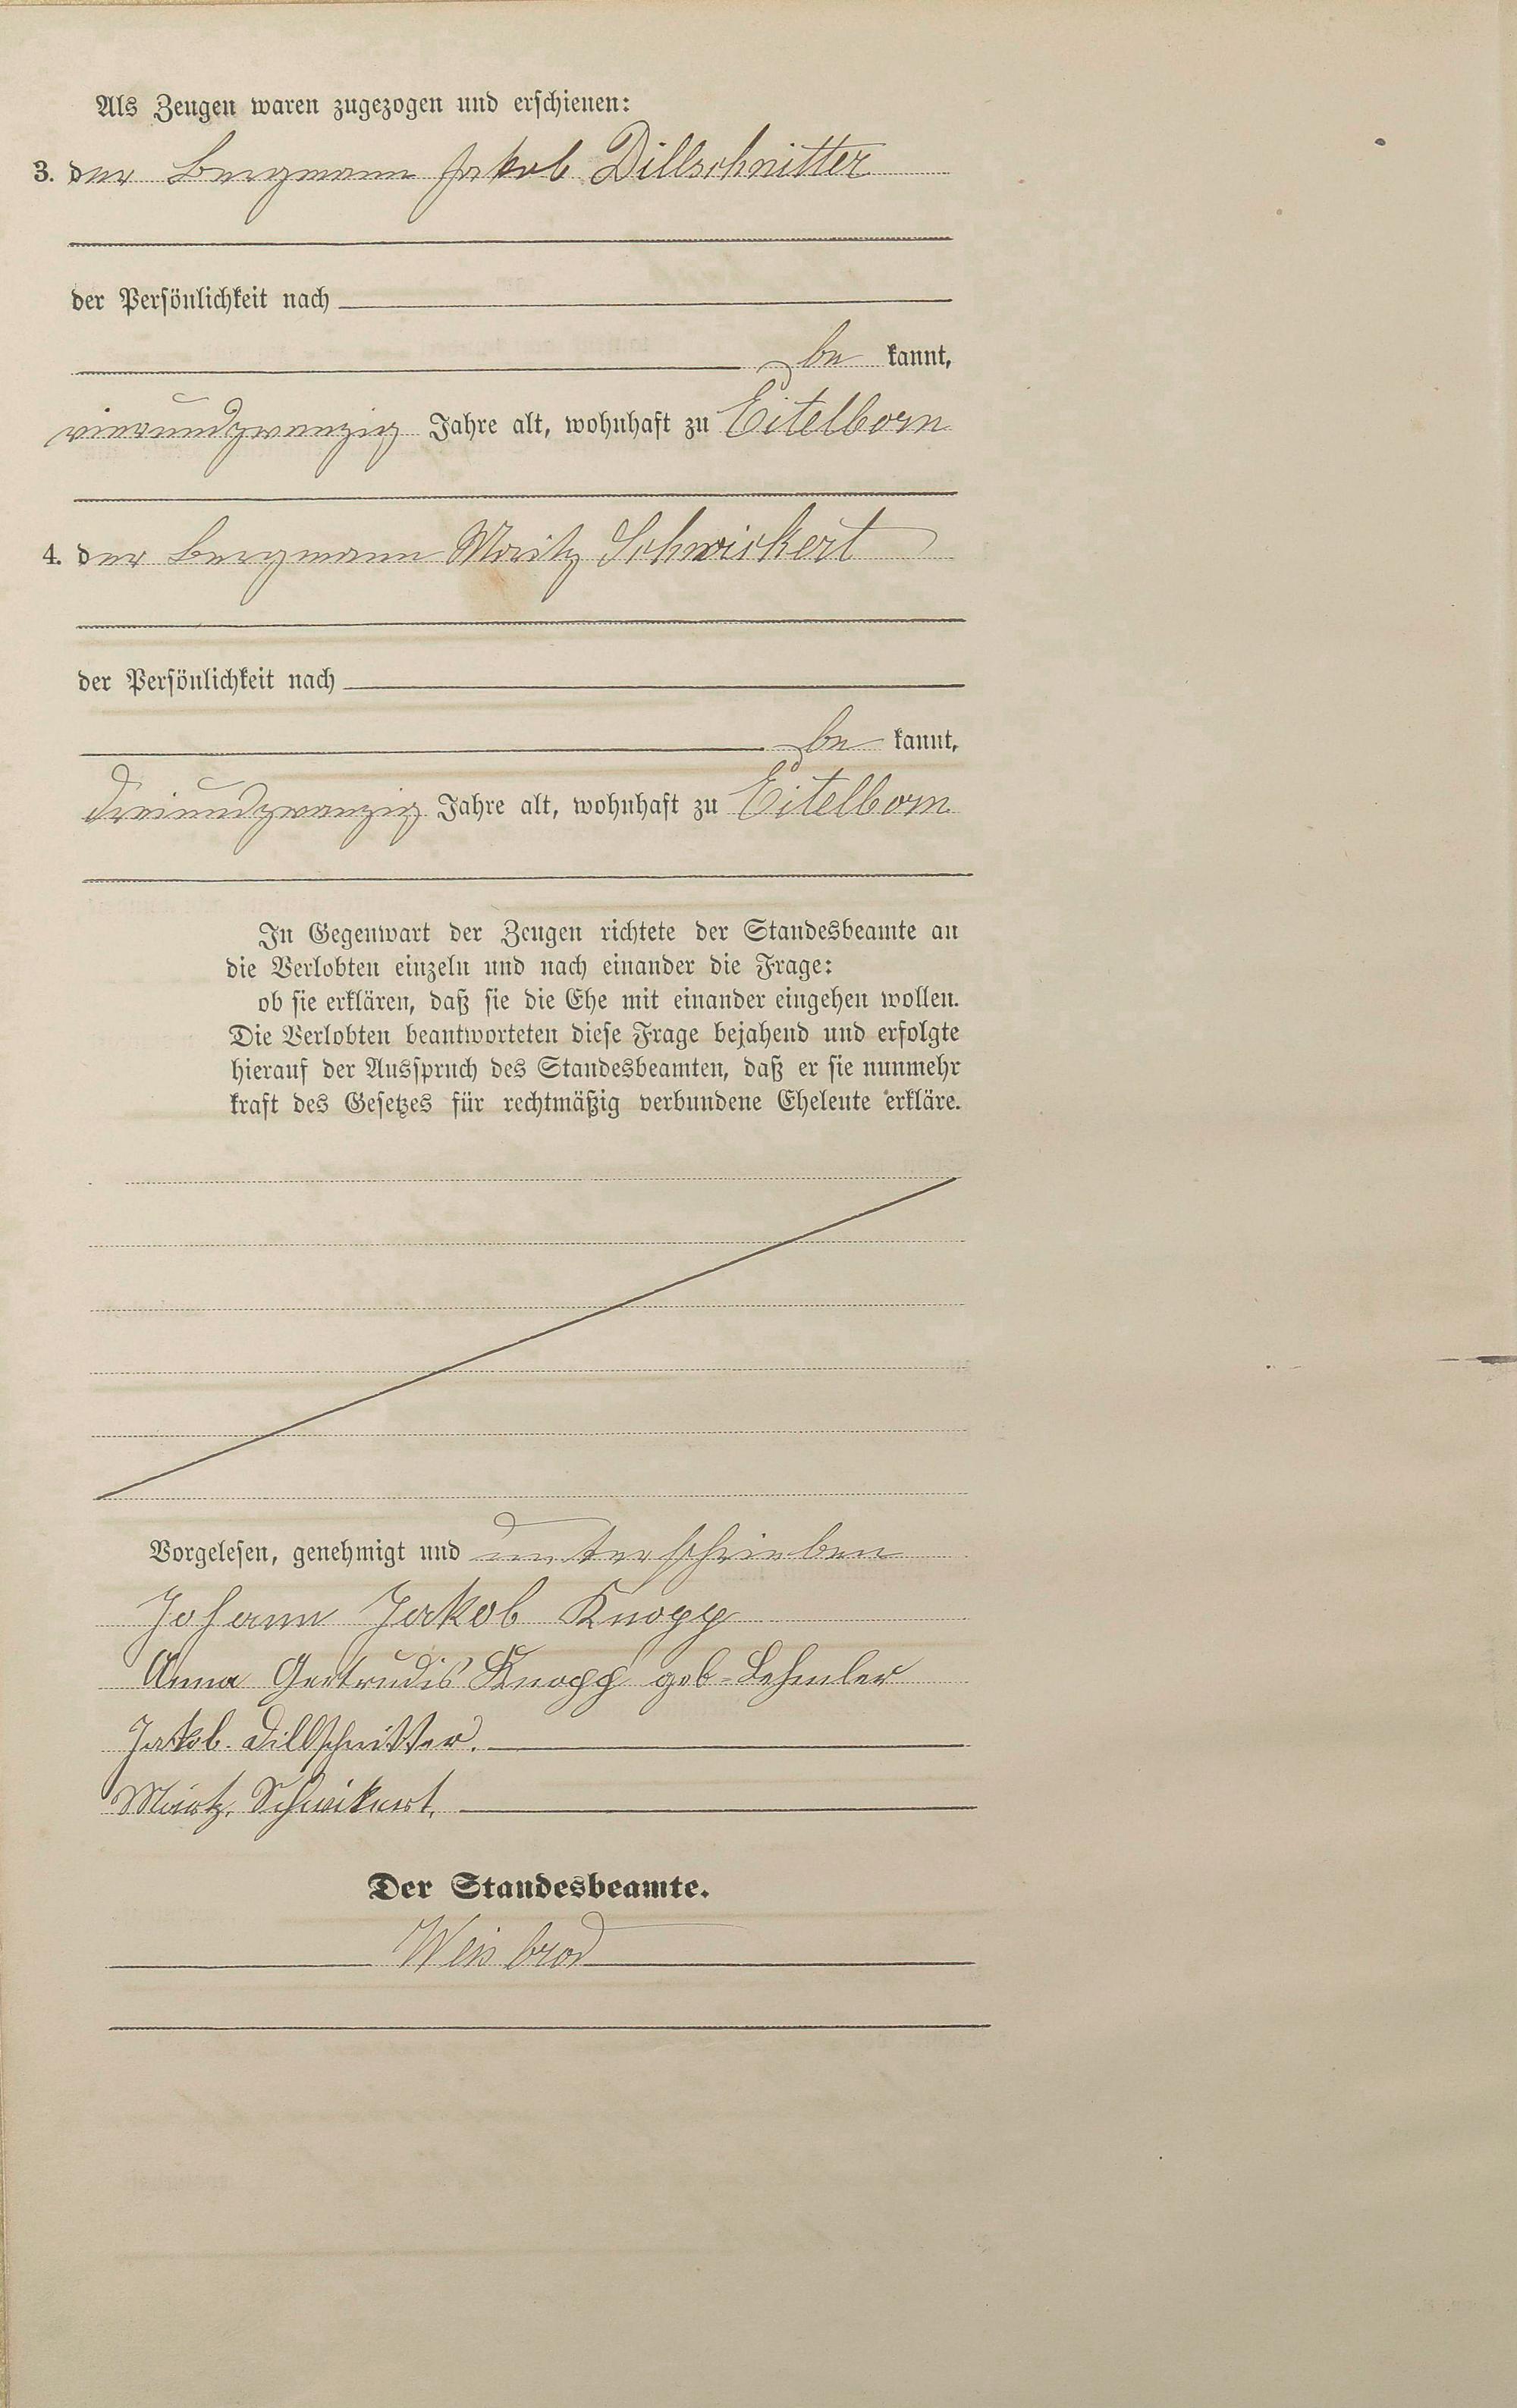 Als Zeugen waren zugezogen und erschienen:
3. der Bergmann Jakob Dillschnitter
der Persönlichkeit nach
be kannt,
vierundzwanzig Jahre alt, wohnhaft zu Eitelborn
4. der Bergmann Moritz Schwickert
der Persönlichkeit nach
be kannt,
dreiundzwanzig Jahre alt, wohnhaft zu Eitelborn
In Gegenwart der Zeugen richtete der Standesbeamte an
die Verlobten einzeln und nach einander die Frage:
ob sie erklären, daß sie die Ehe mit einander eingehen wollen.
Die Verlobten beantworteten diese Frage bejahend und erfolgte
hierauf der Ausspruch des Standesbeamten, daß er sie nunmehr
kraft des Gesetzes für rechtmäßig verbundene Eheleute erkläre.
Vorgelesen, genehmigt und unterschrieben
Johann Jakob Knopp
Anna Gertrudis Knopp geb. Lehmler
Jakob Dillschnitter.
Moritz Schwikert.
Der Standesbeamte.
Weisbrod